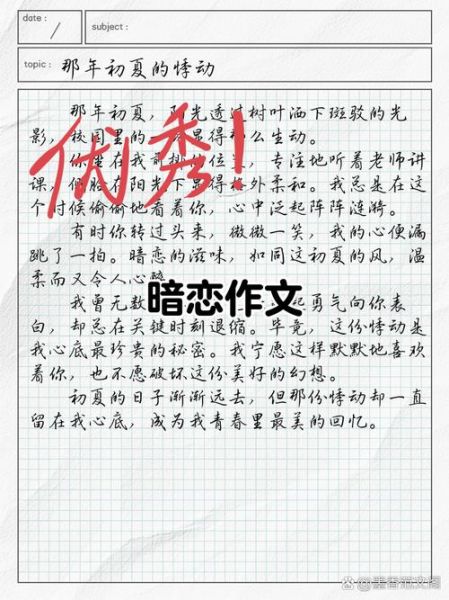 date:
subject:
topic: 那年初夏的悸动
那年初夏,阳光透过树叶洒下斑驳的光
影,校园里的一切显得那么生动。
你坐在我前排的位置,专注地听着老师讲
课,侧脸在阳光下显得格外柔和。我总是在这
个时候偷偷地看着你,心中泛起阵阵涟漪。
有时你转过头来,微微一笑,我的心便漏
跳了一拍。暗恋的滋味,如同这初夏的风,温
柔而又令人心醉
我曾无数 起勇气向你表
白,却总在关键时刻退缩。毕竟,这份悸动是
我心底最珍贵的秘密。我宁愿这样默默地喜欢
着你,也不愿破坏这份美好的幻想。
初夏的日子渐渐远去,但那份悸动却一直
留在我心底,成为我青春里最美的回忆。
优秀!
暗恋作文
墨香范文阁